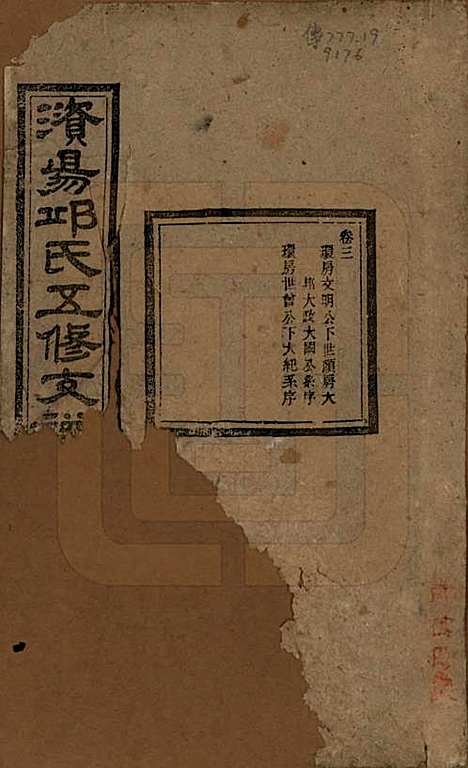 傳777.19
9176
資陽邱氏五修支譜
卷三
環房文明公下世顏房大
邦大政大國公系序
環房世曾公下大紀系序